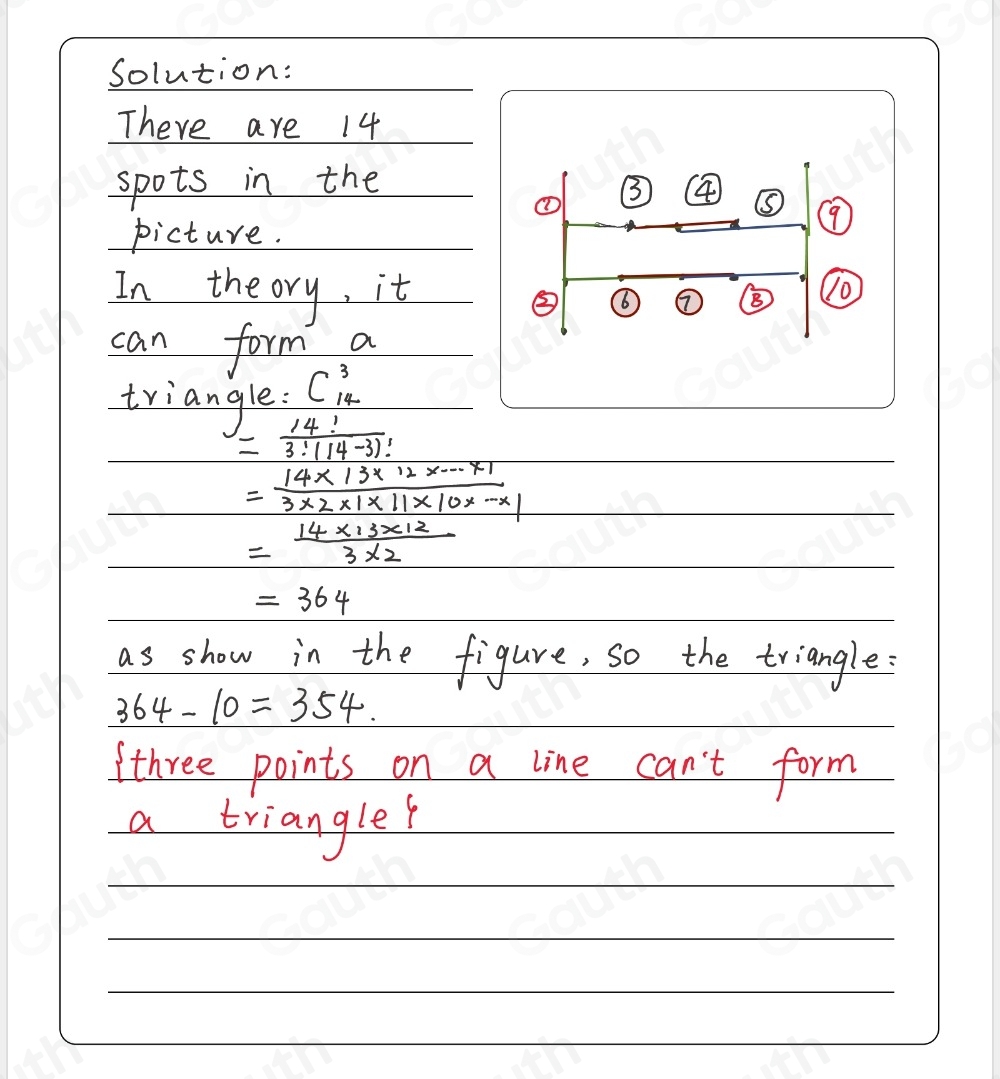 Solution:
There are 14
spots in the
picture.
In theory, it
can form a
triangle: C³₁₄
= 14! / 3!(14-3)!
= 14×13×12×---×1 / 3×2×1×11×10×---×1
= 14×13×12 / 3×2
= 364
as show in the figure, so the triangle:
364-10=354.
{three points on a line can't form
a triangle}
① ③ ④ ⑤ ⑨
② ⑥ ⑦ ⑧ ⑩
Gauth